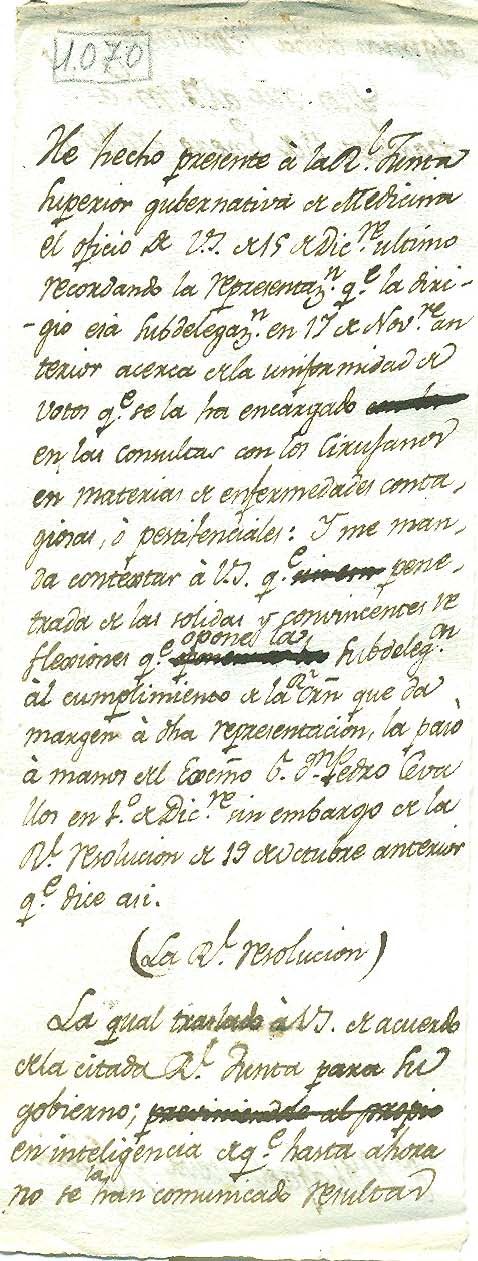 1.070
He hecho presente à la Rl. Junta
Superior gubernativa de Medicina
el oficio de V.S. de 15 de Dicre. ultimo
recordando la representazn. qe. la diri-
-gio esa Subdelegazn. en 17 de Novre. an
terior acerca de la uniformidad de
votos qe. se la ha encargado
en las consultas con los Cirujanos
en materias de enfermedades conta-
giosas, ò pestilenciales: Y me man-
da contextar à V.S. qe. pene-
trada de las solidas y convincentes re
flexiones qe. opone la Subdelegn.
àl cumplimiento de la Rl. Orn que da
margen à dha representacion, la pasò
à manos del Excmo Sr. dn. Pedro Ceva
llos en 1.o de Dicre. sin embargo de la
Rl. resolucion de 19 de Octubre anterior
qe. dice asi.
(La Rl. resolucion)
La qual traslado à V.S. de acuerdo
de la citada Rl. Junta para su
gobierno; previniendole al propio
en inteligencia de qe. hasta ahora
no se la han comunicado resultas